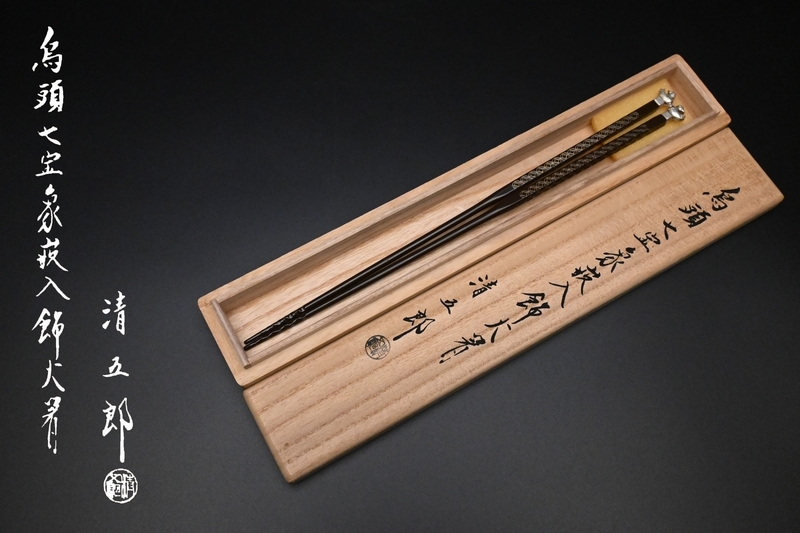 烏頭七宝象嵌入飾火箸
清五郎
烏頭七宝象嵌入飾火箸
清五郎